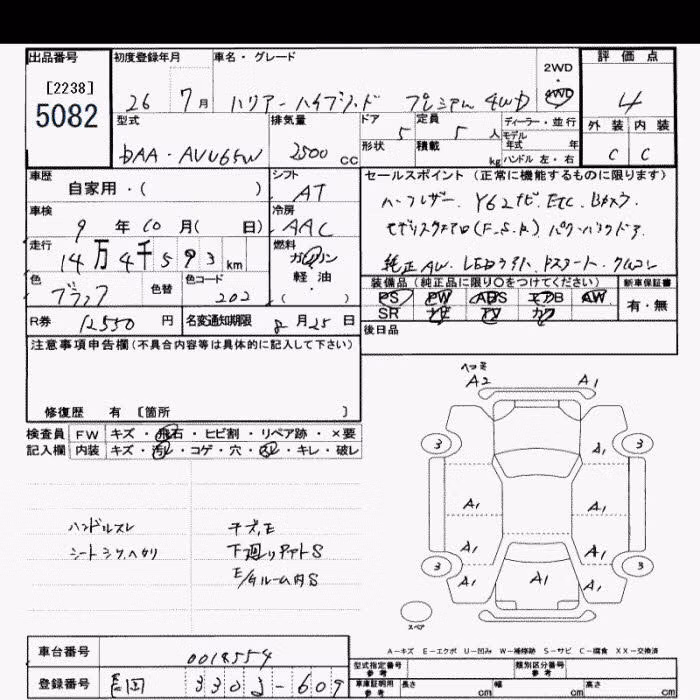 出品番号 初度登録年月 車名・グレード 2WD ・ 4WD 評価点
[2238]
5082
26 7月 ハリアーハイブリッド プレミアム 4WD 4
型式 排気量 ドア 定員 ディーラー・並行
5 5人 モデル年式 年
外装 内装
DAA・AVU65W 2500cc 形状 積載 kg ハンドル 左・右 C C
車歴 シフト セールスポイント(正常に機能するものに限ります)
自家用・( ) AT
ハーフレザー. Y62ナビ. ETC. Bカメラ
車検 冷房
9年 10月( 日) AAC
モデリスタエアロ(F.S.R). パワーバックドア
走行 燃料
14万4千593km ガソリン・軽油・( )
純正AW. LEDライト. Pスタート. クルコン
色 色替 色コード 装備品(純正品に限り○をつけてください) 新車保証書
ブラック 202 PS PW ABS エアB AW 有・無
SR ナビ TV カワ
R券 12550円 名変通知期限 8月25日 後日品
注意事項申告欄(不具合内容等は具体的に記入して下さい)
修復歴 有 [箇所 ]
検査員 FW キズ・飛石・ヒビ割・リペア跡・×要
記入欄 内装 キズ・汚レ・コゲ・穴・スレ・キレ・破レ
ヘコミ
A2 A1
3 A1 3
A1 A1
A1 A1
3 A1 A1 A1 3
スペア
ハンドルスレ キズ,E
シートシワ,ヘタリ 下廻りアットS
E/Gルーム内S
A−キズ E−エクボ U−凹み W−補修跡 S−サビ C−腐食 XX−交換済
車台番号 0018554
型式指定番号 参考 類別区分番号 参考
登録番号 3303-609
車庫証明用 参考 長さ cm 幅 cm 高さ cm